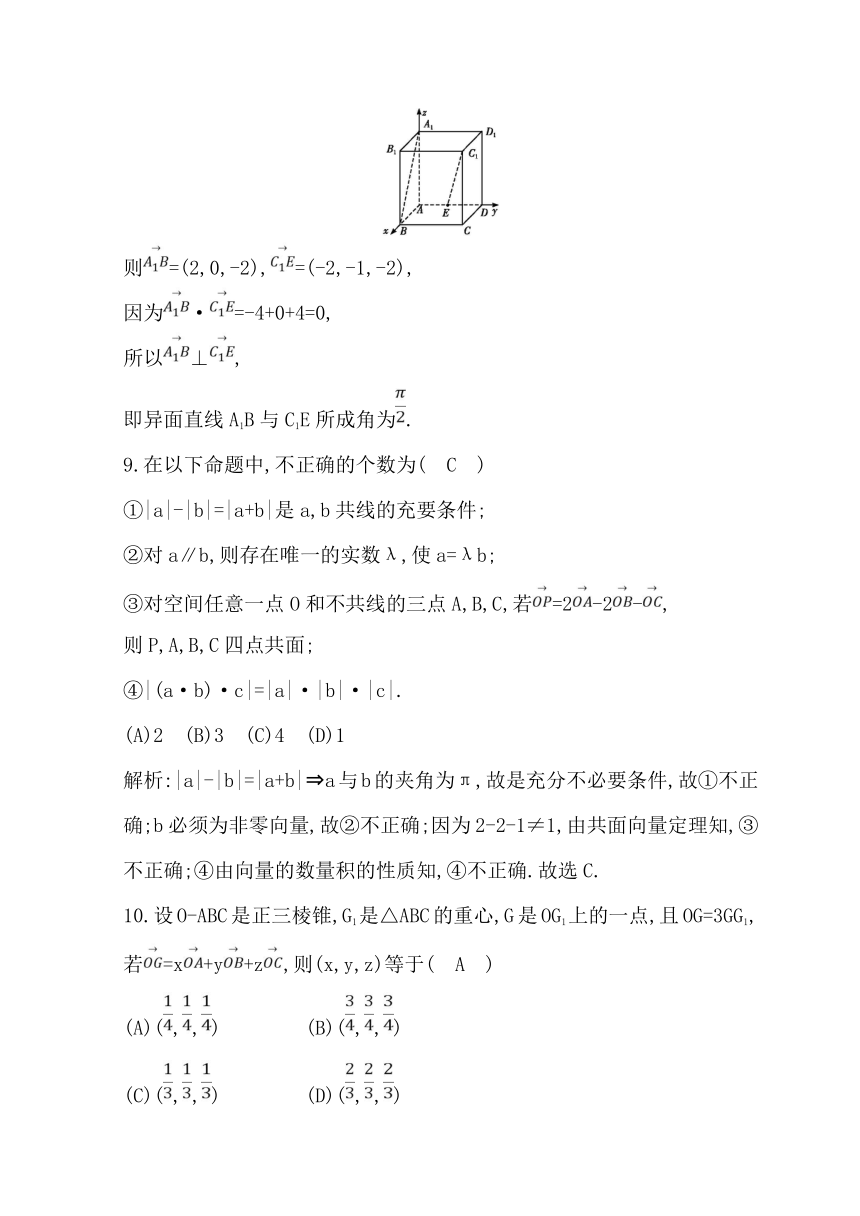 z
A₁ D₁
B₁ C₁
A E D y
x B C
则A₁B→=(2,0,-2),C₁E→=(-2,-1,-2),
因为A₁B→·C₁E→=-4+0+4=0,
所以A₁B→⊥C₁E→,
即异面直线A₁B与C₁E所成角为π/2.
9.在以下命题中,不正确的个数为( C )
①|a|-|b|=|a+b|是a,b共线的充要条件;
②对a∥b,则存在唯一的实数λ,使a=λb;
③对空间任意一点O和不共线的三点A,B,C,若OP→=2OA→-2OB→-OC→,
则P,A,B,C四点共面;
④|(a·b)·c|=|a|·|b|·|c|.
(A)2 (B)3 (C)4 (D)1
解析:|a|-|b|=|a+b|⇒a与b的夹角为π,故是充分不必要条件,故①不正
确;b必须为非零向量,故②不正确;因为2-2-1≠1,由共面向量定理知,③
不正确;④由向量的数量积的性质知,④不正确.故选C.
10.设O-ABC是正三棱锥,G₁是△ABC的重心,G是OG₁上的一点,且OG=3GG₁,
若OG→=xOA→+yOB→+zOC→,则(x,y,z)等于( A )
(A)(1/4,1/4,1/4) (B)(3/4,3/4,3/4)
(C)(1/3,1/3,1/3) (D)(2/3,2/3,2/3)